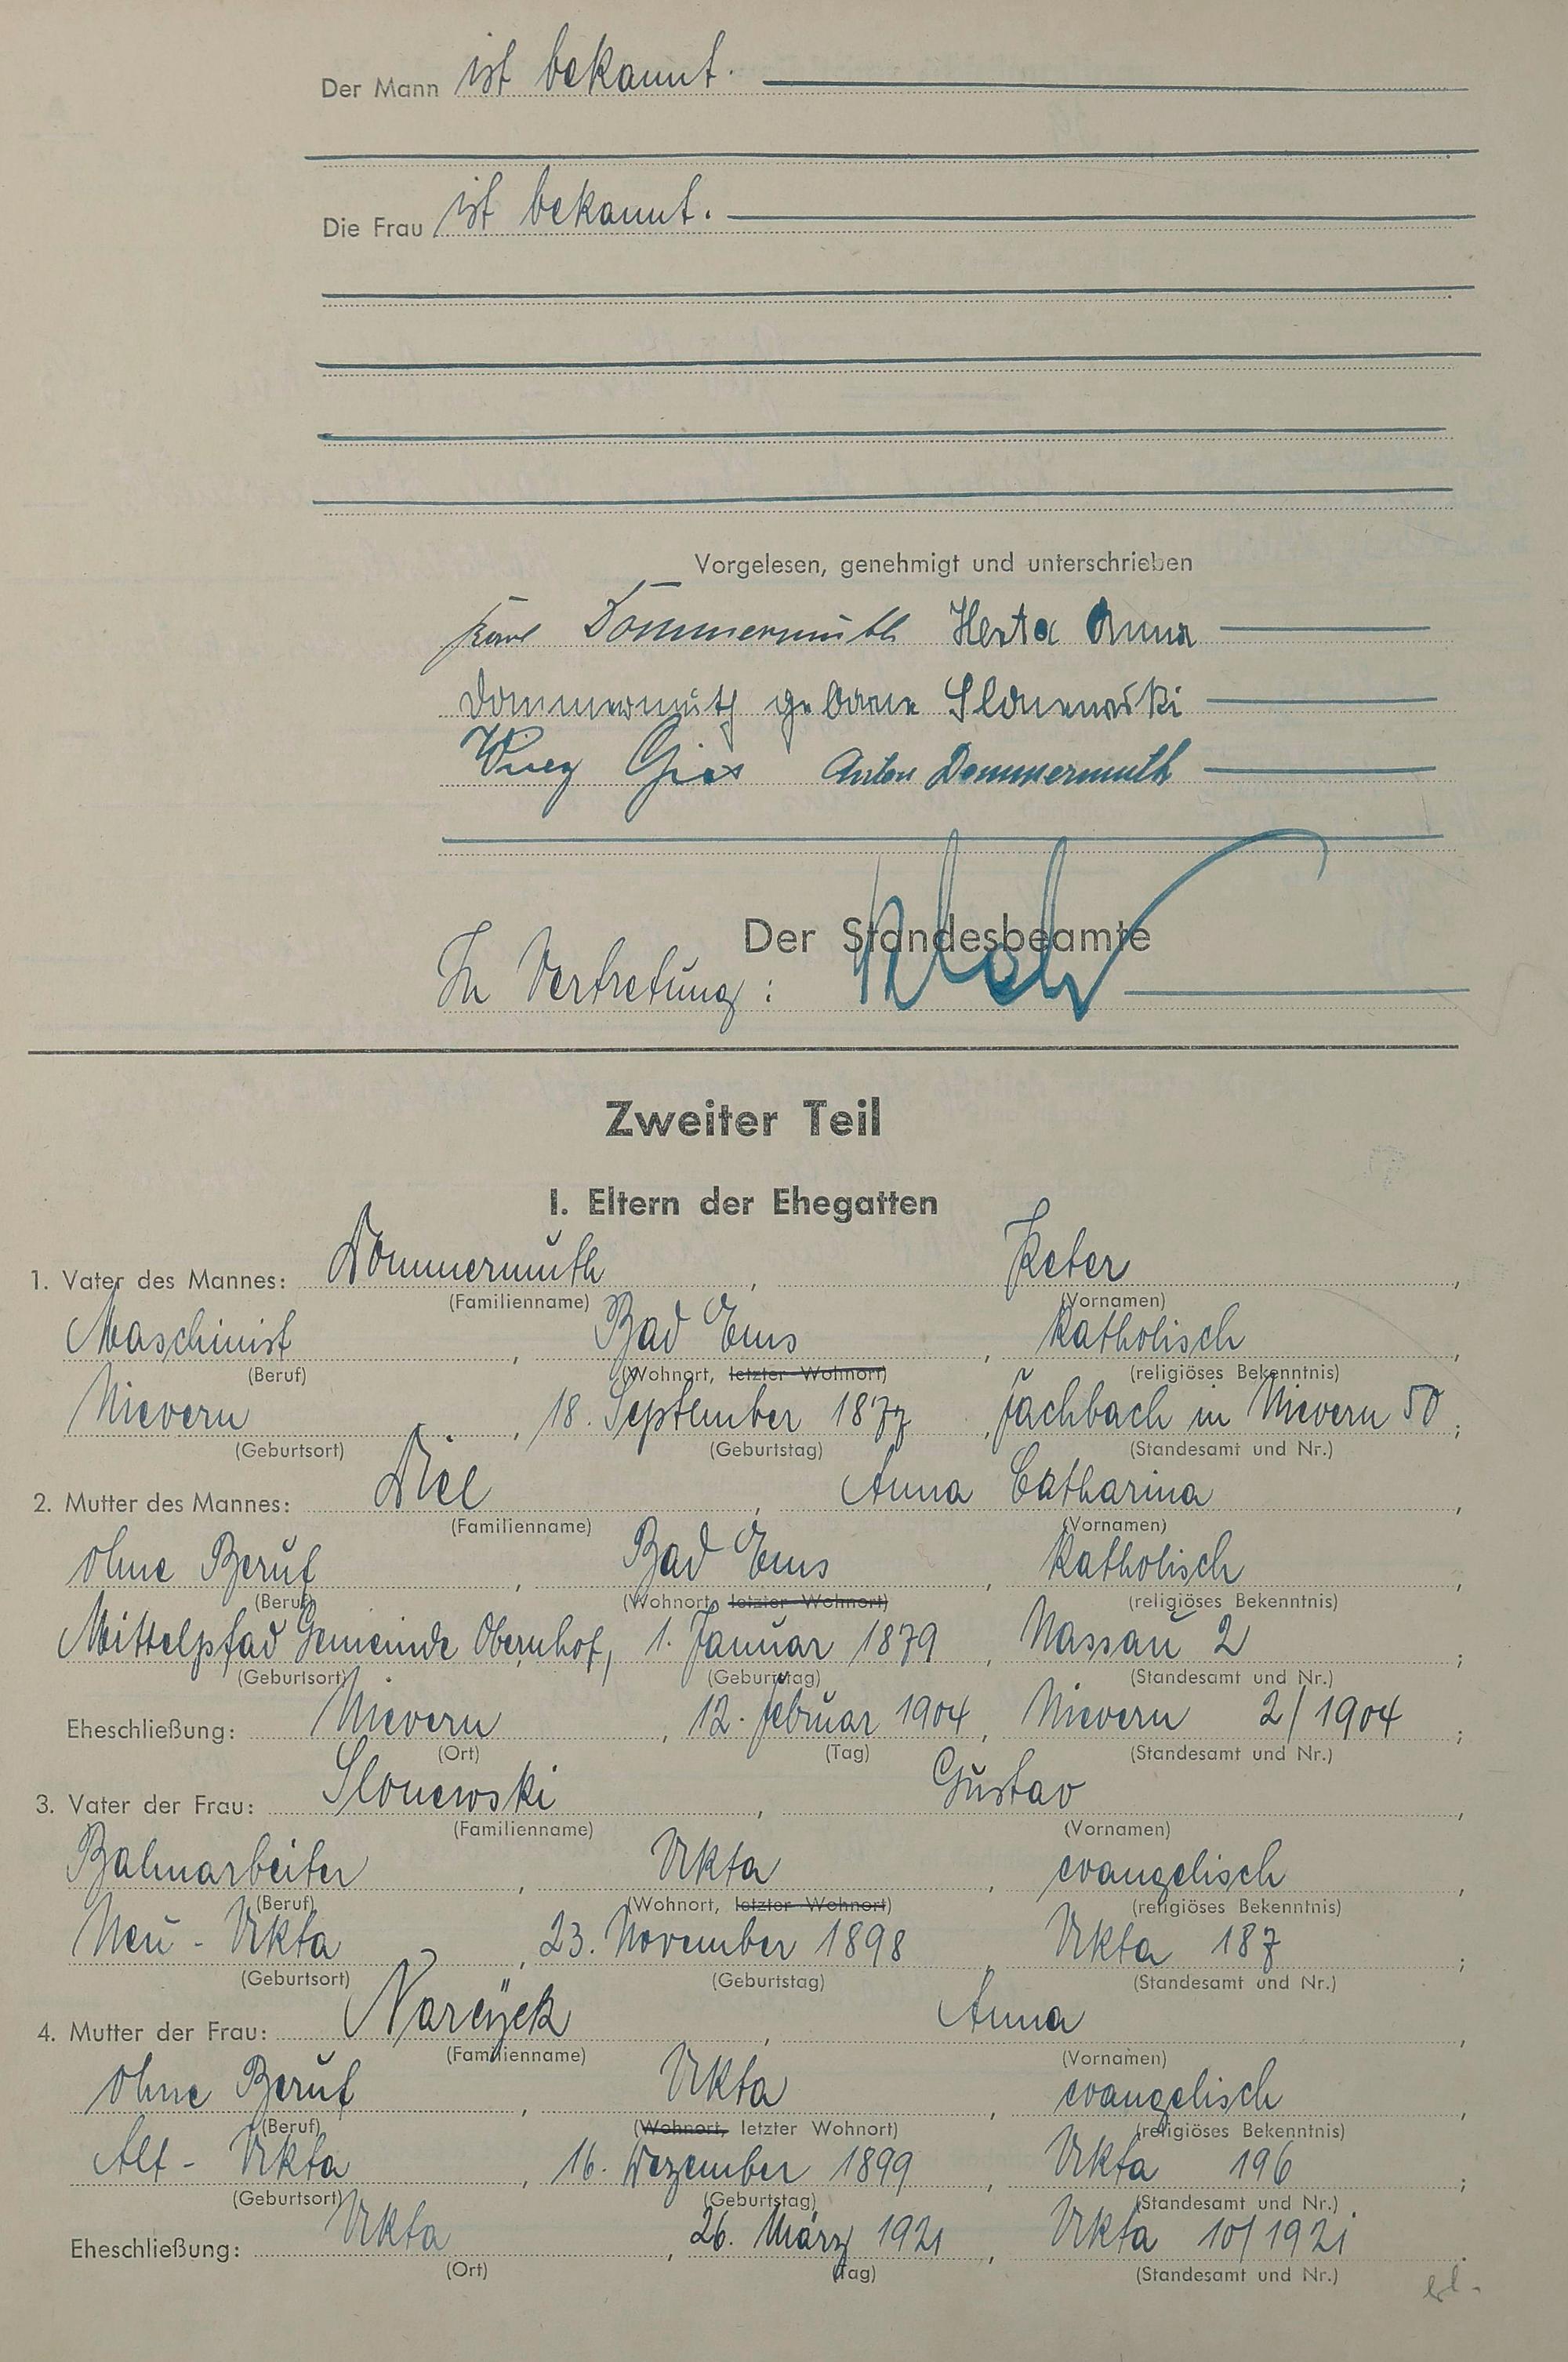 Der Mann ist bekannt.
Die Frau ist bekannt.
Vorgelesen, genehmigt und unterschrieben
Karl Dommermuth Herta Anna
Dommermuth geborene Slonewski
Gies Anton Dommermuth
Der Standesbeamte
In Vertretung:
Zweiter Teil
I. Eltern der Ehegatten
1. Vater des Mannes: Dommermuth, Peter,
(Familienname) (Vornamen)
Maschinist, Bad Ems, katholisch,
(Beruf) (Wohnort, letzter Wohnort) (religiöses Bekenntnis)
Nievern, 18. September 1877, Fachbach in Nievern 50;
(Geburtsort) (Geburtstag) (Standesamt und Nr.)
2. Mutter des Mannes: Diel, Anna Catharina,
(Familienname) (Vornamen)
ohne Beruf, Bad Ems, katholisch,
(Beruf) (Wohnort, letzter Wohnort) (religiöses Bekenntnis)
Mittelpfad Gemeinde Obernhof, 1. Januar 1879, Nassau 2;
(Geburtsort) (Geburtstag) (Standesamt und Nr.)
Eheschließung: Nievern, 12. Februar 1904, Nievern 2/1904;
(Ort) (Tag) (Standesamt und Nr.)
3. Vater der Frau: Slonewski, Gustav,
(Familienname) (Vornamen)
Bahnarbeiter, Ukta, evangelisch,
(Beruf) (Wohnort, letzter Wohnort) (religiöses Bekenntnis)
Neu-Ukta, 23. November 1898, Ukta 187;
(Geburtsort) (Geburtstag) (Standesamt und Nr.)
4. Mutter der Frau: Anna,
(Familienname) (Vornamen)
ohne Beruf, Ukta, evangelisch,
(Beruf) (Wohnort, letzter Wohnort) (religiöses Bekenntnis)
Alt-Ukta, 16. Dezember 1899, Ukta 196;
(Geburtsort) (Geburtstag) (Standesamt und Nr.)
Eheschließung: Ukta, 26. März 1921, Ukta 10/1921.
(Ort) (Tag) (Standesamt und Nr.)